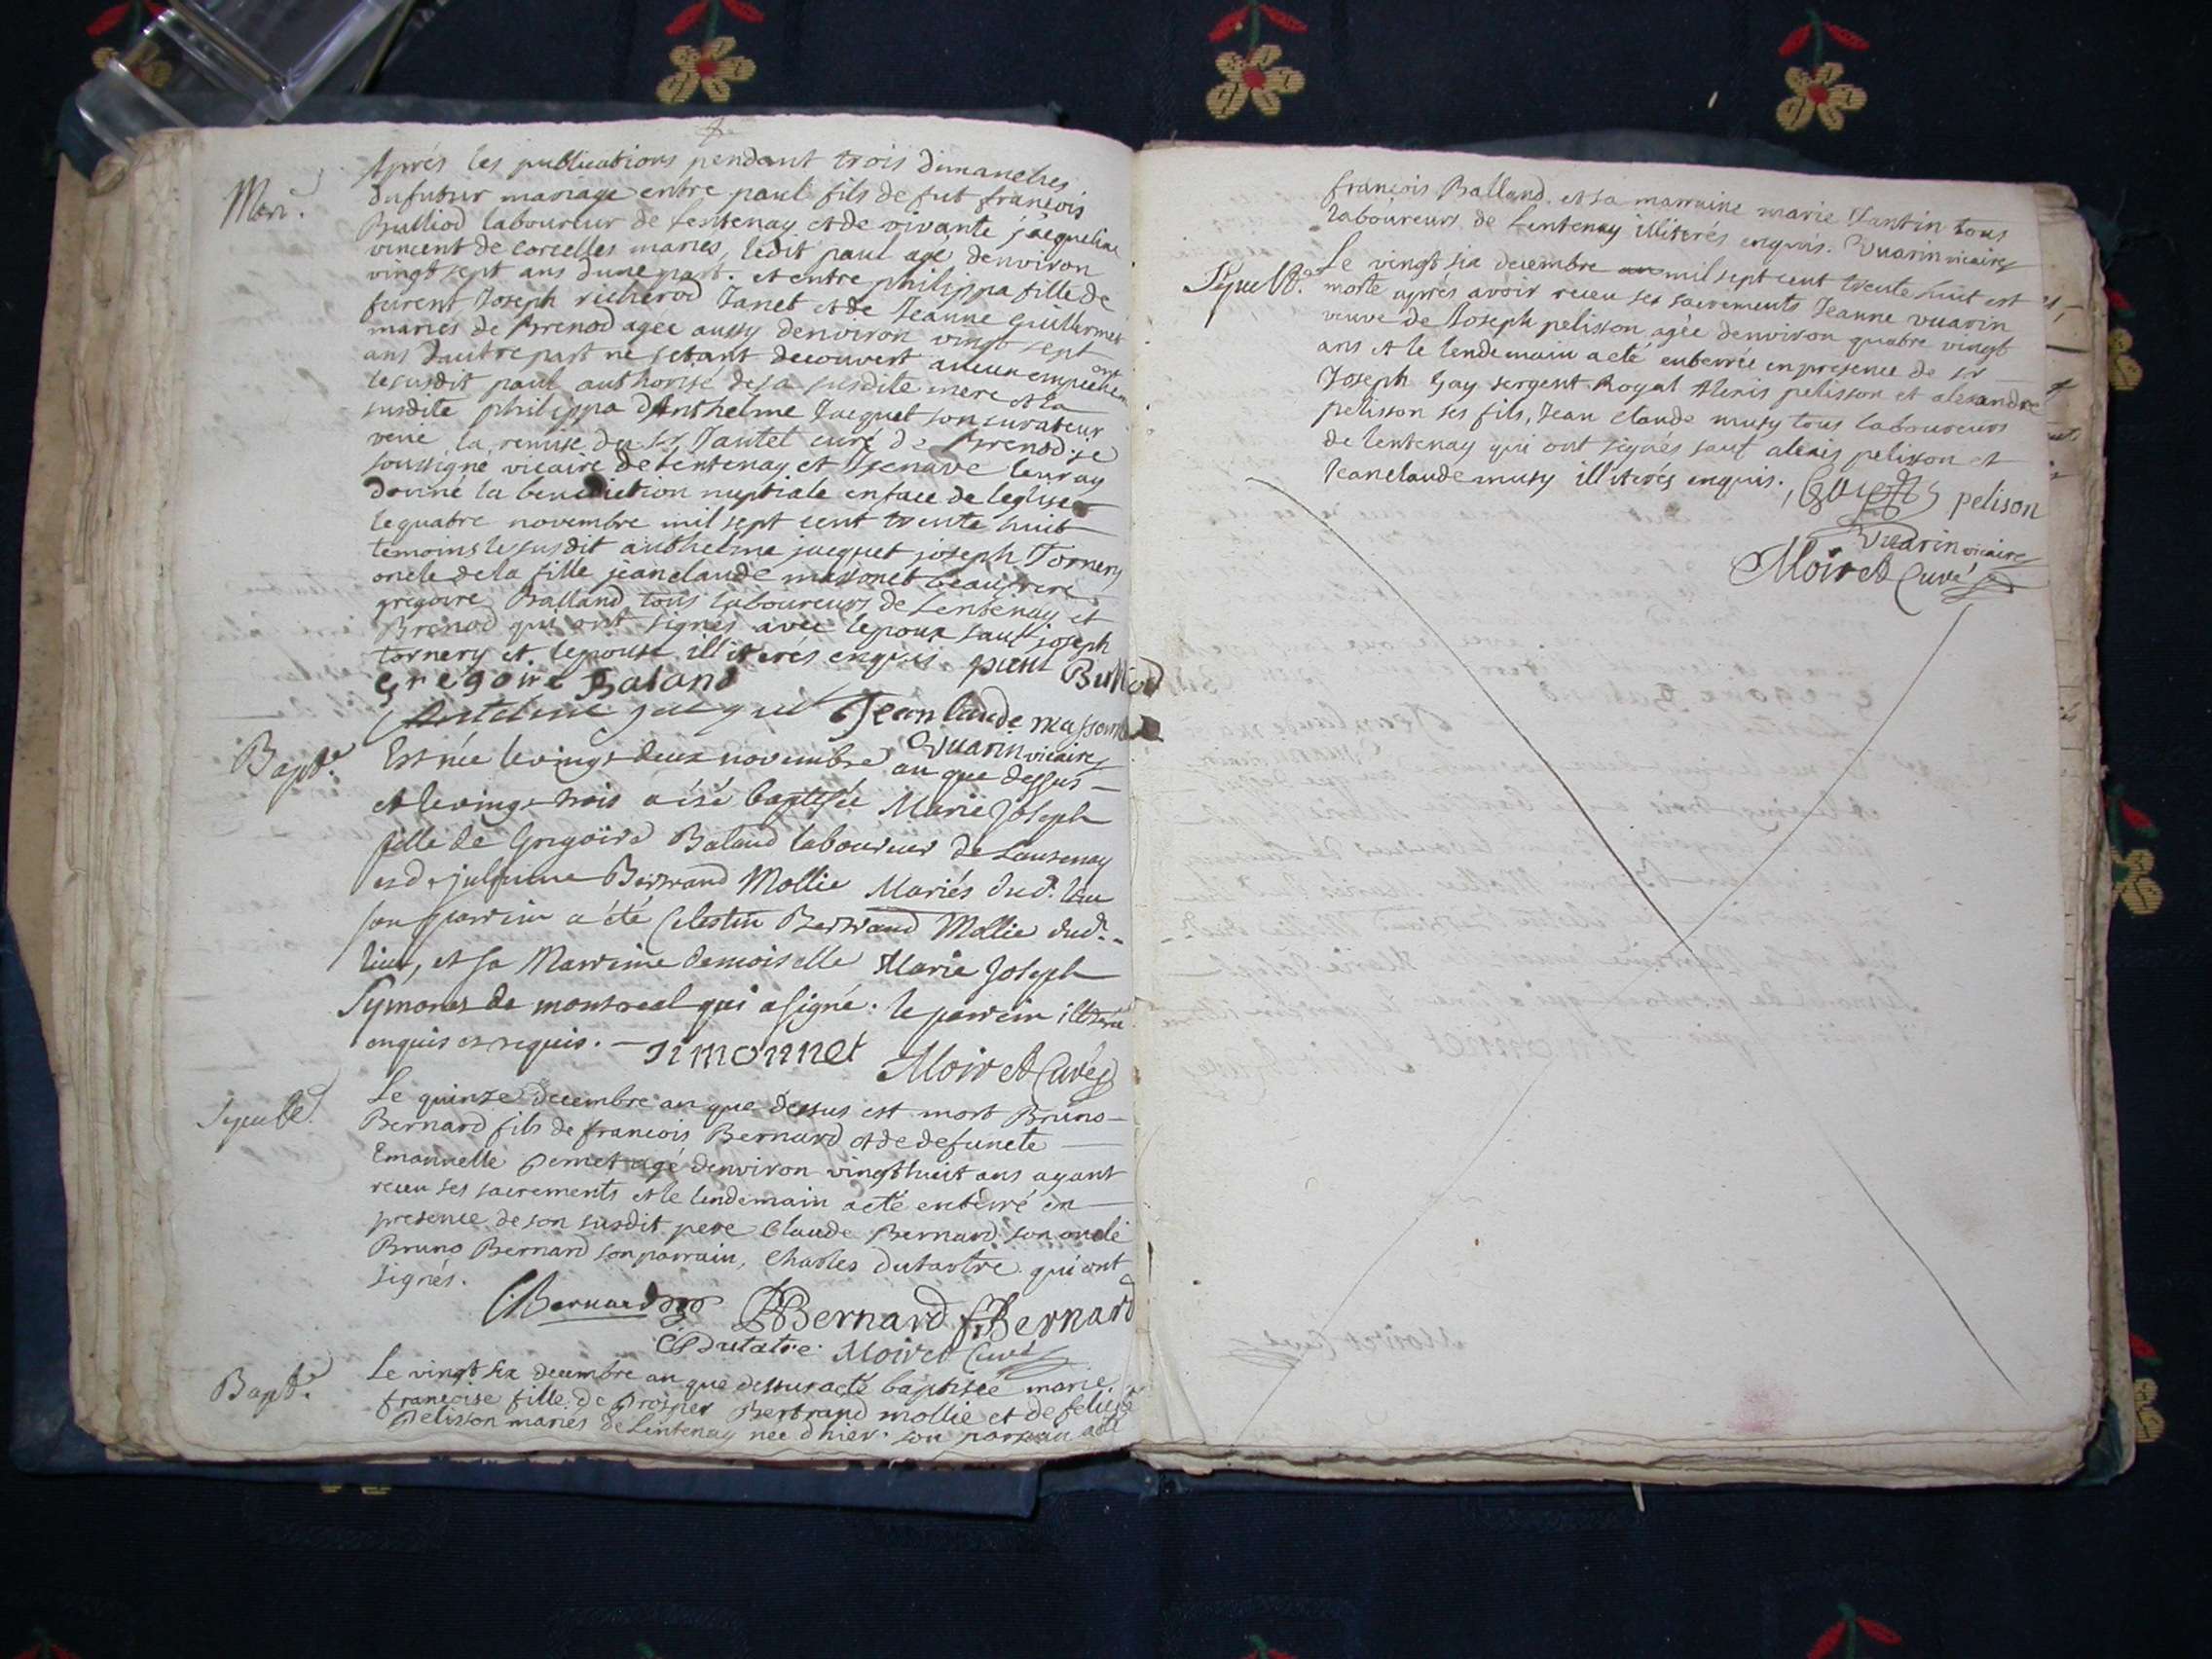 Mari.
Aprés les publications pendant trois dimanches
du futur mariage entre paul fils de fut francois
Bulliod laboureur de lentenay et de vivante jacqueline
vincent de corcelles maries, ledit paul agé denviron
vingt sept ans dune part. et entre philippa fille de
furent Joseph richerod Janet et de Jeanne guillermet
maries de Brenod agee aussy denviron vingt sept
ans dautre part ne setant decouvert aucun empechem ent
le susdit paul authorisé de sa susdite mere et la
susdite philippa dAnthelme Jacquet son curateur
veüe la remise du Sr. Tantet curé de Brenod. je
soussigné vicaire de lentenay et Izenave leur ay
donné la benediction nuptiale en face de leglise
le quatre novembre mil sept cent trente huit
temoins le susdit anthelme jacquet joseph Tornery
oncle de la fille jeanclaude massonet beaufrere
gregoire Balland tous laboureurs de Lentenay et
Brenod qui ont signés avec lepoux sauf joseph
tornery et lepouse illiterés enquis. paul Bulliod
Gregoire Baland
Antelme jacquet Jean laude massone
Vuarin vicaire
Bapt.e
Est née le vingt deux novembre an que dessus
et le vingt trois a été baptisée Marie Joseph
fille de Grigoire Baland laboureur de Lantenay
et de Bertrand Mollie Mariés dud. lieu
son parrein a été Celestin Bertrand Mollie dud.
lieu, et sa Marreine demoiselle Marie Joseph
Symonet de montreal qui a signé: le parrein illiteré
enquis et requis. — Simonnet Moiret Curé
Sepult.e
Le quinze decembre an que dessus est mort Bruno
Bernard fils de francois Bernard et de defuncte
Emanuelle Pernet agé denviron vingt huit ans ayant
receu ses sacrements et le lendemain a eté enterré en
presence de son susdit pere Claude Bernard son oncle
Bruno Bernard son parrain, Charles dutartre qui ont
signés.
C Bernard B Bernard f. Bernard
C Dutatre. Moiret Curé
Bapt.e
Le vingt six decembre an que dessus a eté baptisée marie
francoise fille de Prosper Bertrand mollie et de felicité
Pelisson mariés de Lintenay nee dhier. son parrain a eté
francois Balland. et sa marraine marie Tantin tous
laboureurs de Lentenay illiterés enquis. Vuarin vicaire
Sepult.e
Le vingt six decembre mil sept cent trente huit est
morte aprés avoir receu ses sacrements Jeanne vuarin
veuve de Joseph pelisson agée denviron quatre vingt
ans et le lendemain a eté enterrée en presence de Sr
Joseph Gay sergent Royal Alexis pelisson et alexandre
pelisson ses fils, Jean claude musy tous laboureurs
de lentenay qui ont signés sauf alexis pelisson et
Jeanclaude musy illiterés enquis. Gay pelison
Vuarin vicaire
Moiret Curé